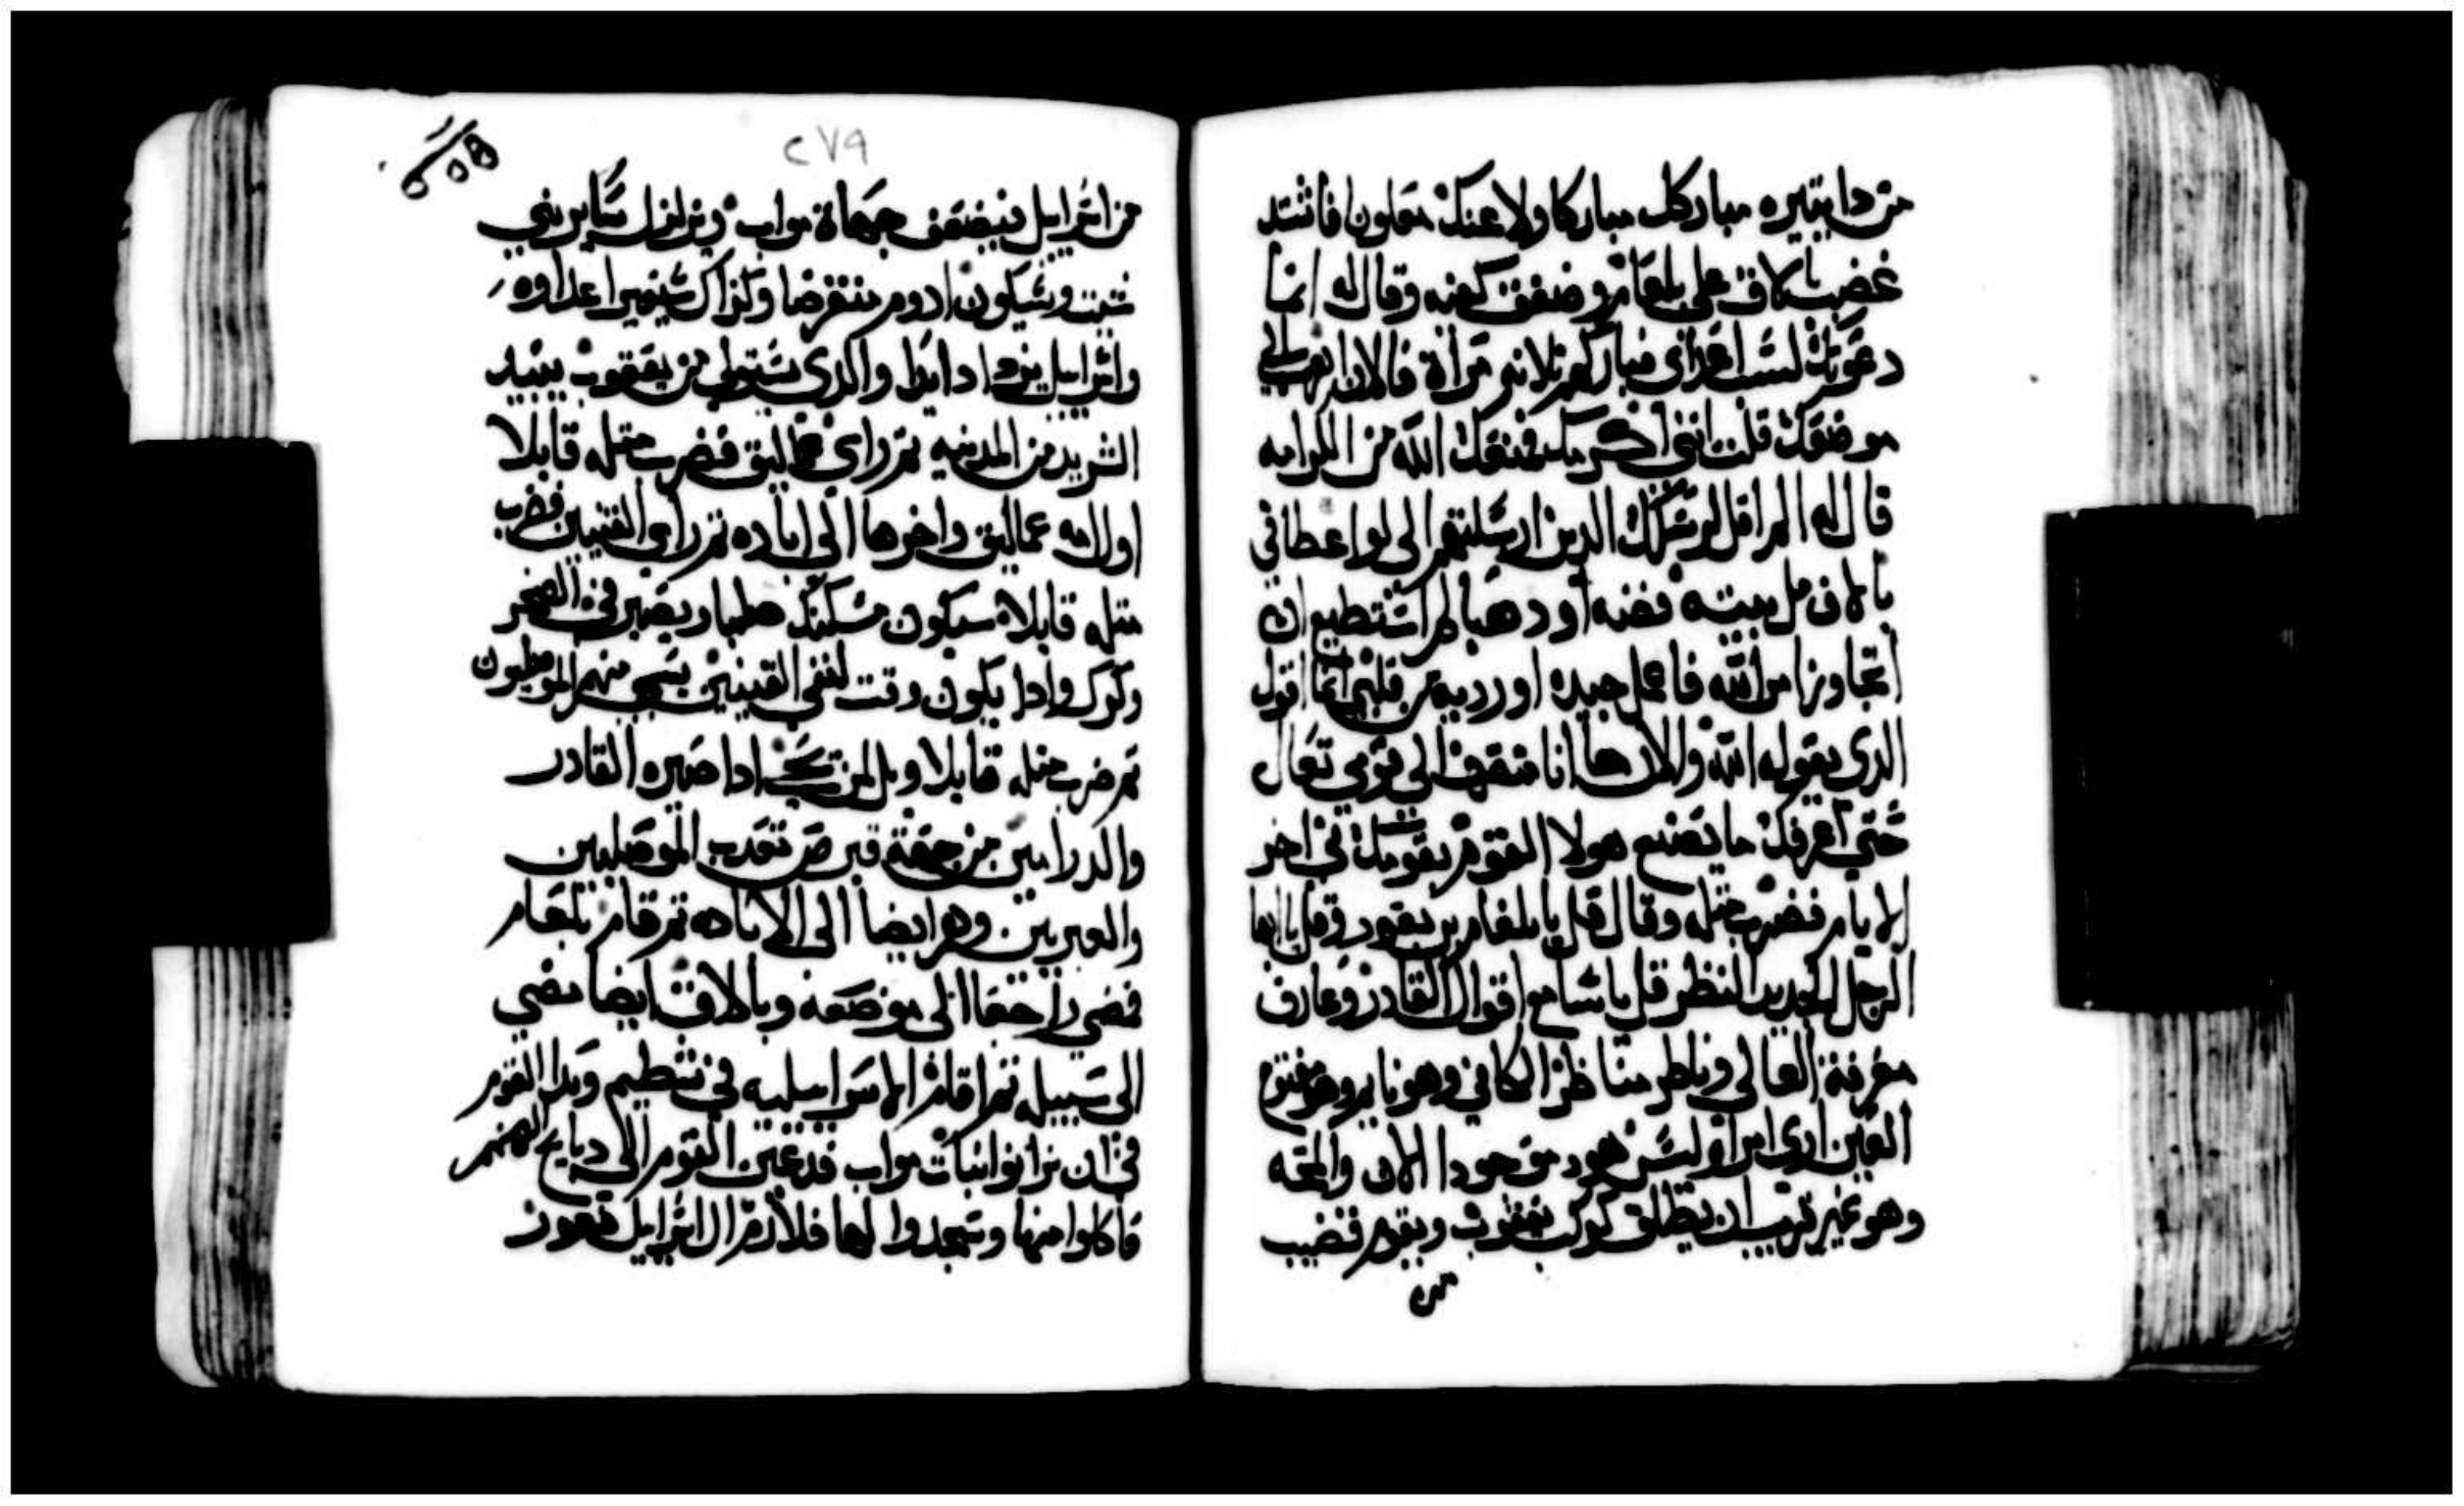 من دا يتيره مباركك مباركا ولاعنك معلون فاشتد
غضب بالاق على بلعام وصفق كفيه وقال له انما
دعوتك لسب اعداي فباركتهم تلاته مرأة فالان انهب الي
موضعك قلت انني اكرمك فمنعك الله من الكرامه
قال له الم اقل لرسلك الدين ارسلتهم الى لو اعطاني
بالاق مل بيته فضه او دهبا لم استطيع ان
اتجاوز امر الله فاعمل جيده او رديه من قلبي انما اقول
الدي يقوله الله والان ها انا منصرف الى قومي تعال
حتي اعرفك ما يصنع هولا القوم بقومك في اخر
الايام فضرب متله وقال قل يا بلعام بن بعور وقل يا ايها
الرجل الحديد النظر قل يا سامع اقوال القادر وعارف
معرفة العالي وناظر مناظر الكافي وهو نايم وهو مفتوح
العين اري امرا وليس هو موجودا الان والمحه
وهو غير قريب ان يطلق كوكب يعقوب ويقوم قضيب
من
٢٧٩
من اسراييل فيضعف جهاة مواب ويزلزل ساير بني
شيت وسيكون ادوم منقرضا وكذاك سيعير اعداوه
واسراييل يزداد ايدا والدي يستولي من يعقوب يبيد
الشريد من المدينه تم راى عماليق فضرب متله قايلا
اول امه عماليق واخرها الى اباده تم راي القينيين فضرب
متله قايلا سيكون مسكنك صلبا ويصير في الصخر
وكرك وادا يكون وقت لنفي القينيين يسبي منهم الموصليون
تم ضرب متله قايلا ويل لمن يحيى ادا صيره القادر
والدرامين من جهة قبرص تعدب الموصليين
والعبريين وهم ايضا الى الاباده تم قام بلعام
فمضى راجعا الى موضعه وبالاق ايضا مضي
الى سبيله تم اقام الاسراييليه في شطيم وبدا القوم
في ان يزانوا بنات مواب فدعين القوم الى دبايح الهتهم
فاكلوا منها وسجدوا لها فلازم ال اسراييل فعور